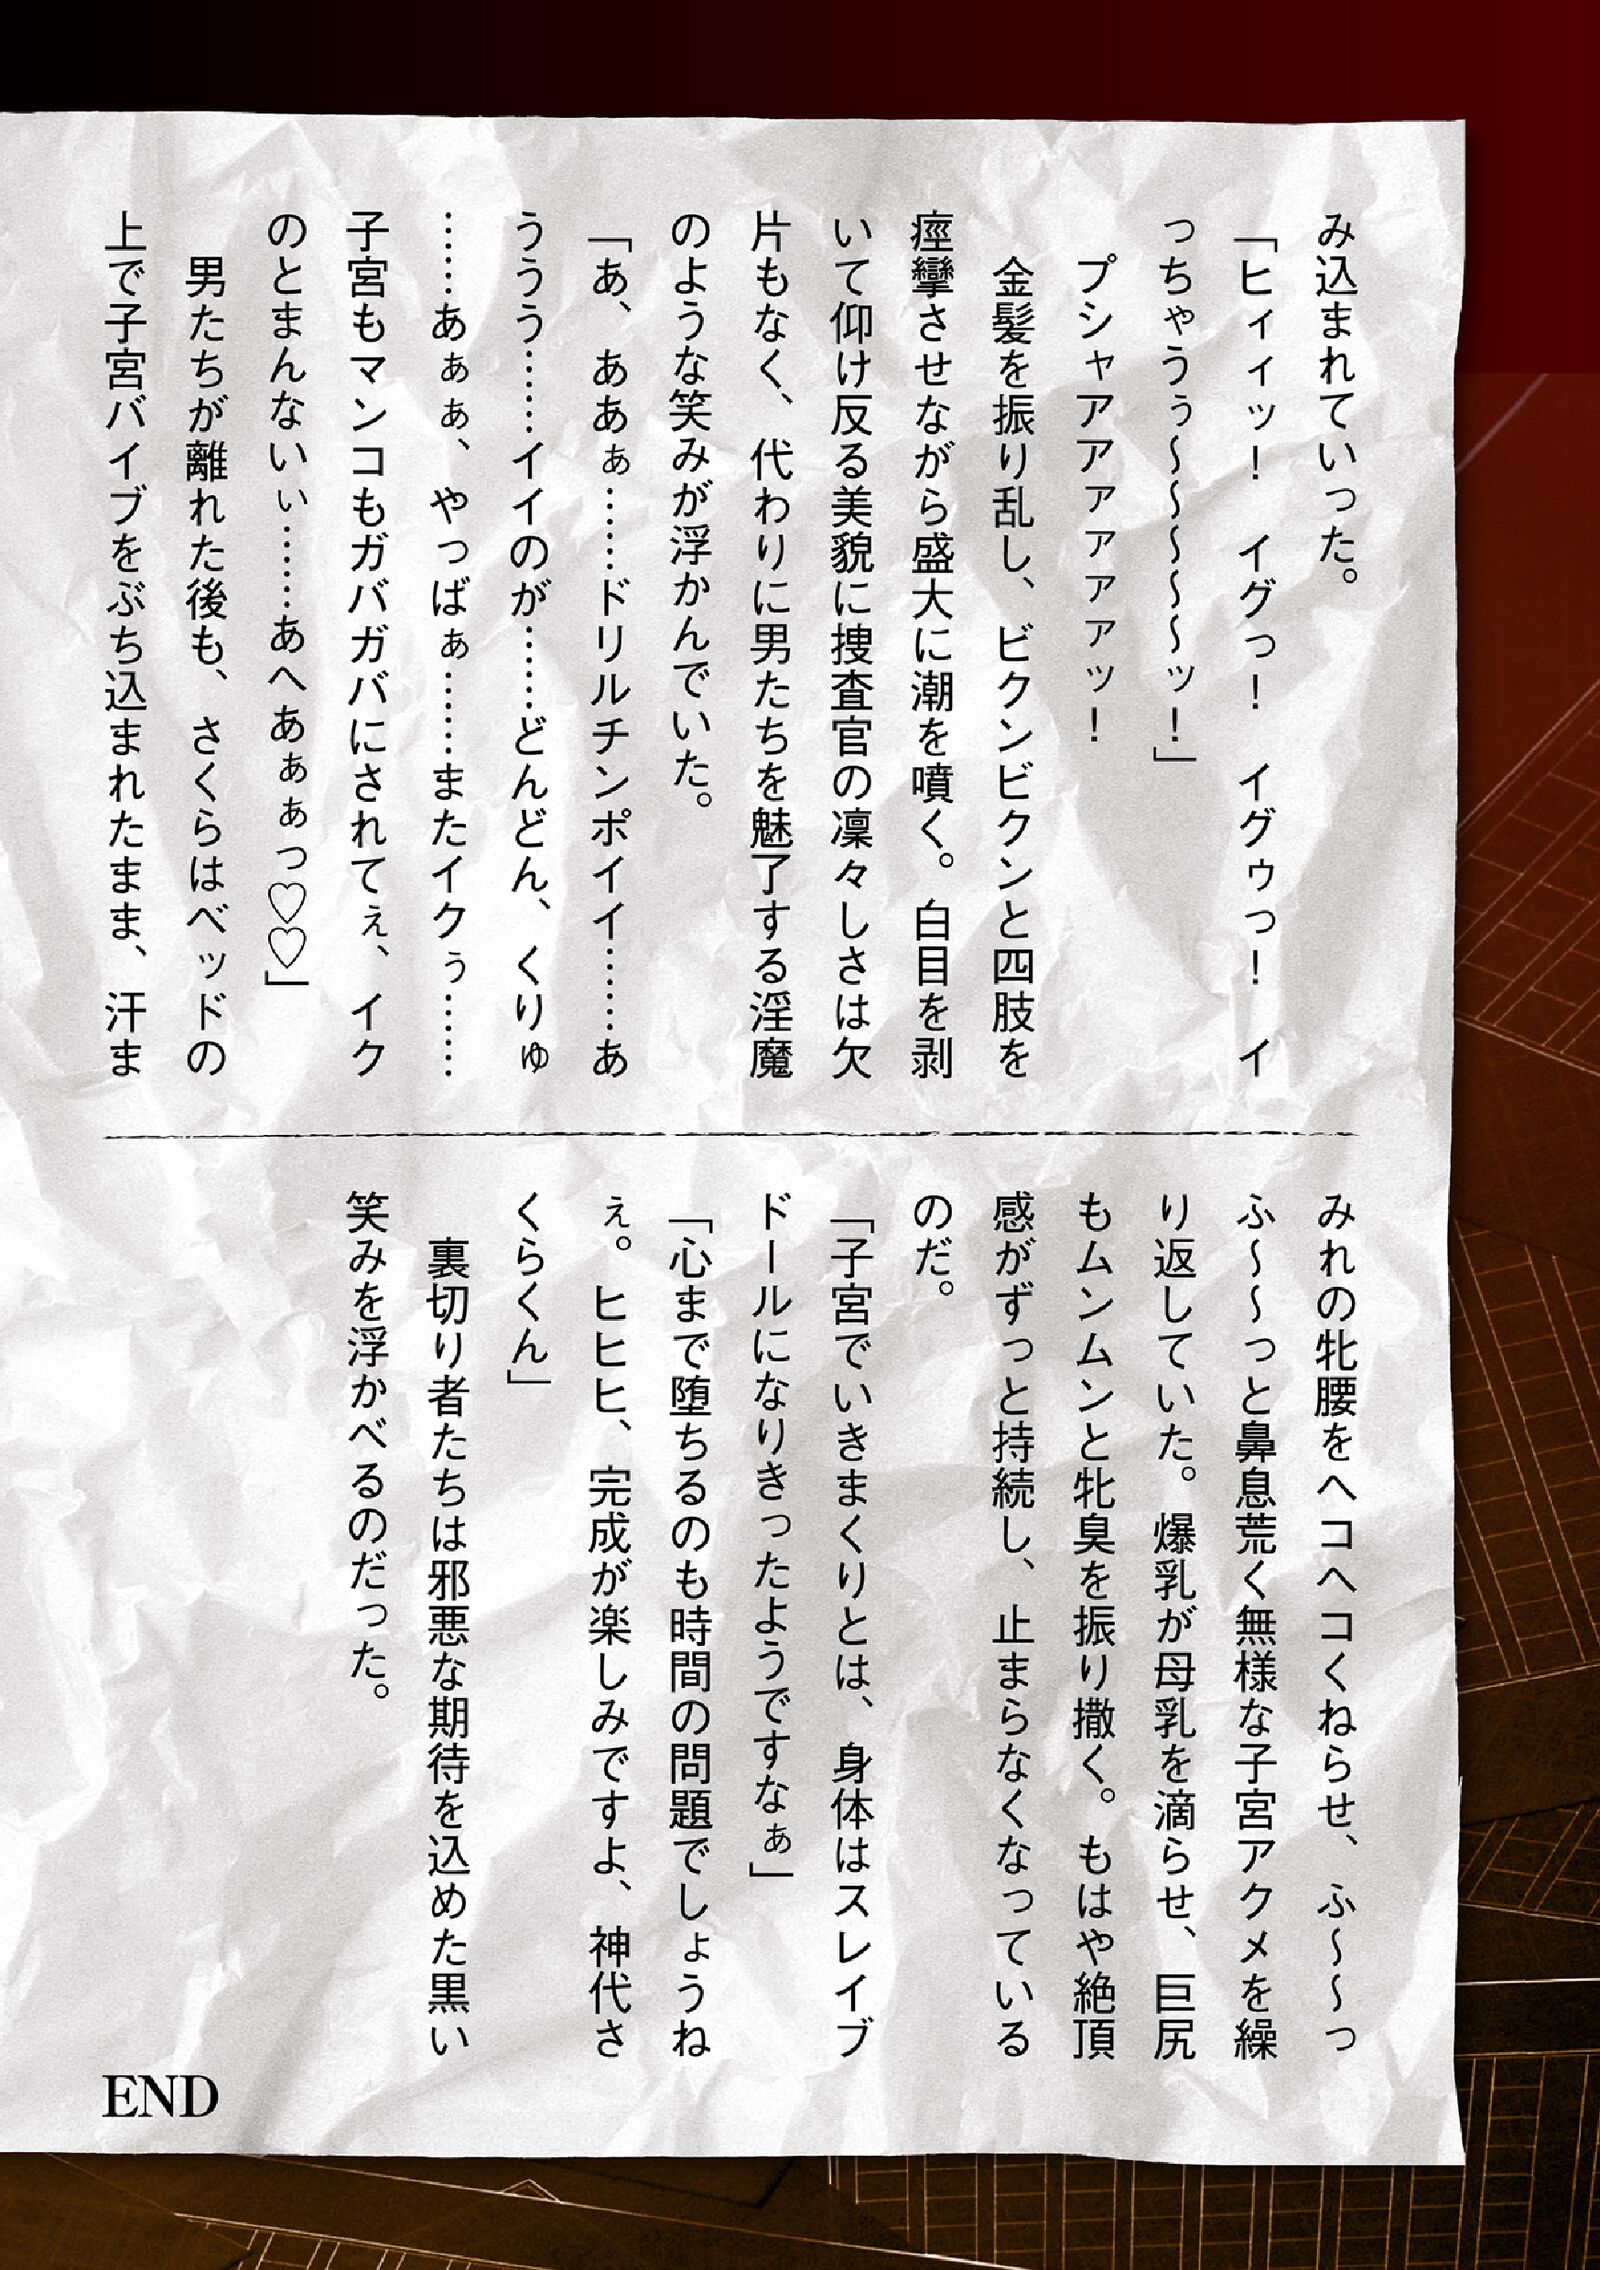 み込まれていった。
「ヒィィッ！　イグっ！　イグゥっ！　イ
っちゃうぅ～～～～～ッ！」
　プシャアアアァァァァッ！
　金髪を振り乱し、ビクンビクンと四肢を
痙攣させながら盛大に潮を噴く。白目を剥
いて仰け反る美貌に捜査官の凜々しさは欠
片もなく、代わりに男たちを魅了する淫魔
のような笑みが浮かんでいた。
「あ、ああぁ……ドリルチンポイイ……あ
ううう……イイのが……どんどん、くりゅ
……あぁぁ、やっばぁ……またイクぅ……
子宮もマンコもガバガバにされてぇ、イク
のとまんないぃ……あへあぁぁっ♡♡」
　男たちが離れた後も、さくらはベッドの
上で子宮バイブをぶち込まれたまま、汗ま
みれの牝腰をヘコヘコくねらせ、ふ～～っ
ふ～～っと鼻息荒く無様な子宮アクメを繰
り返していた。爆乳が母乳を滴らせ、巨尻
もムンムンと牝臭を振り撒く。もはや絶頂
感がずっと持続し、止まらなくなっている
のだ。
「子宮でいきまくりとは、身体はスレイブ
ドールになりきったようですなぁ」
「心まで堕ちるのも時間の問題でしょうね
ぇ。ヒヒヒ、完成が楽しみですよ、神代さ
くらくん」
　裏切り者たちは邪悪な期待を込めた黒い
笑みを浮かべるのだった。
END